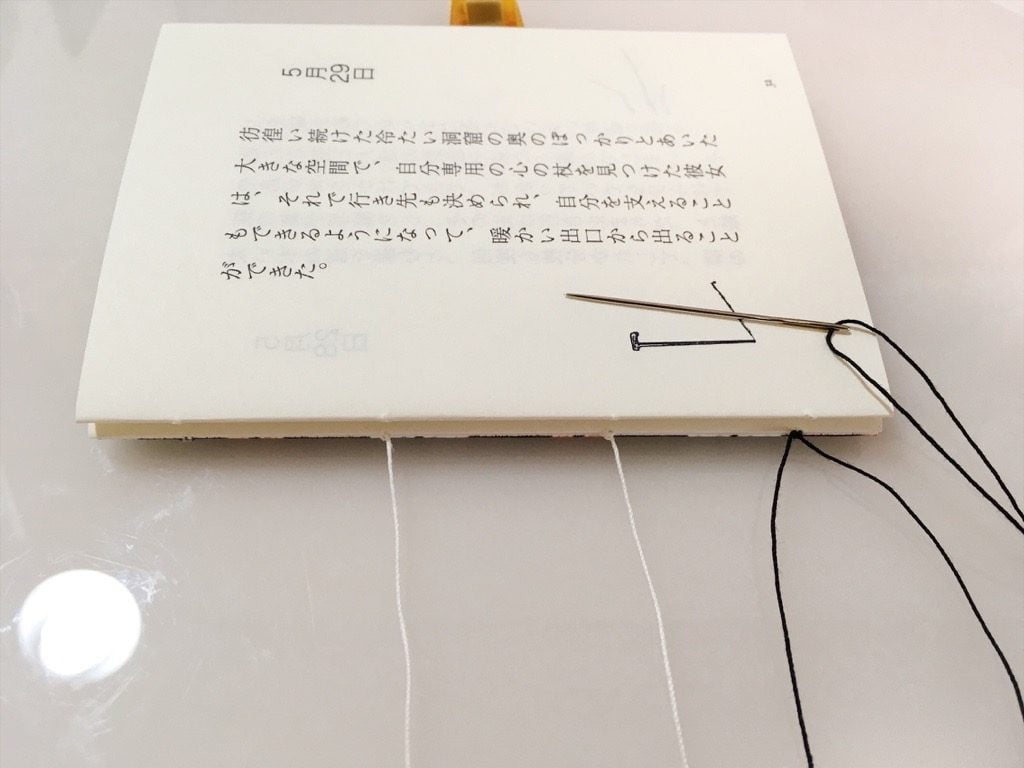 5月29日
彷徨い続けた冷たい洞窟の奥のぽっかりとあいた
大きな空間で、自分専用の心の杖を見つけた彼女
は、それで行き先も決められ、自分を支えること
もできるようになって、暖かい出口から出ること
ができた。